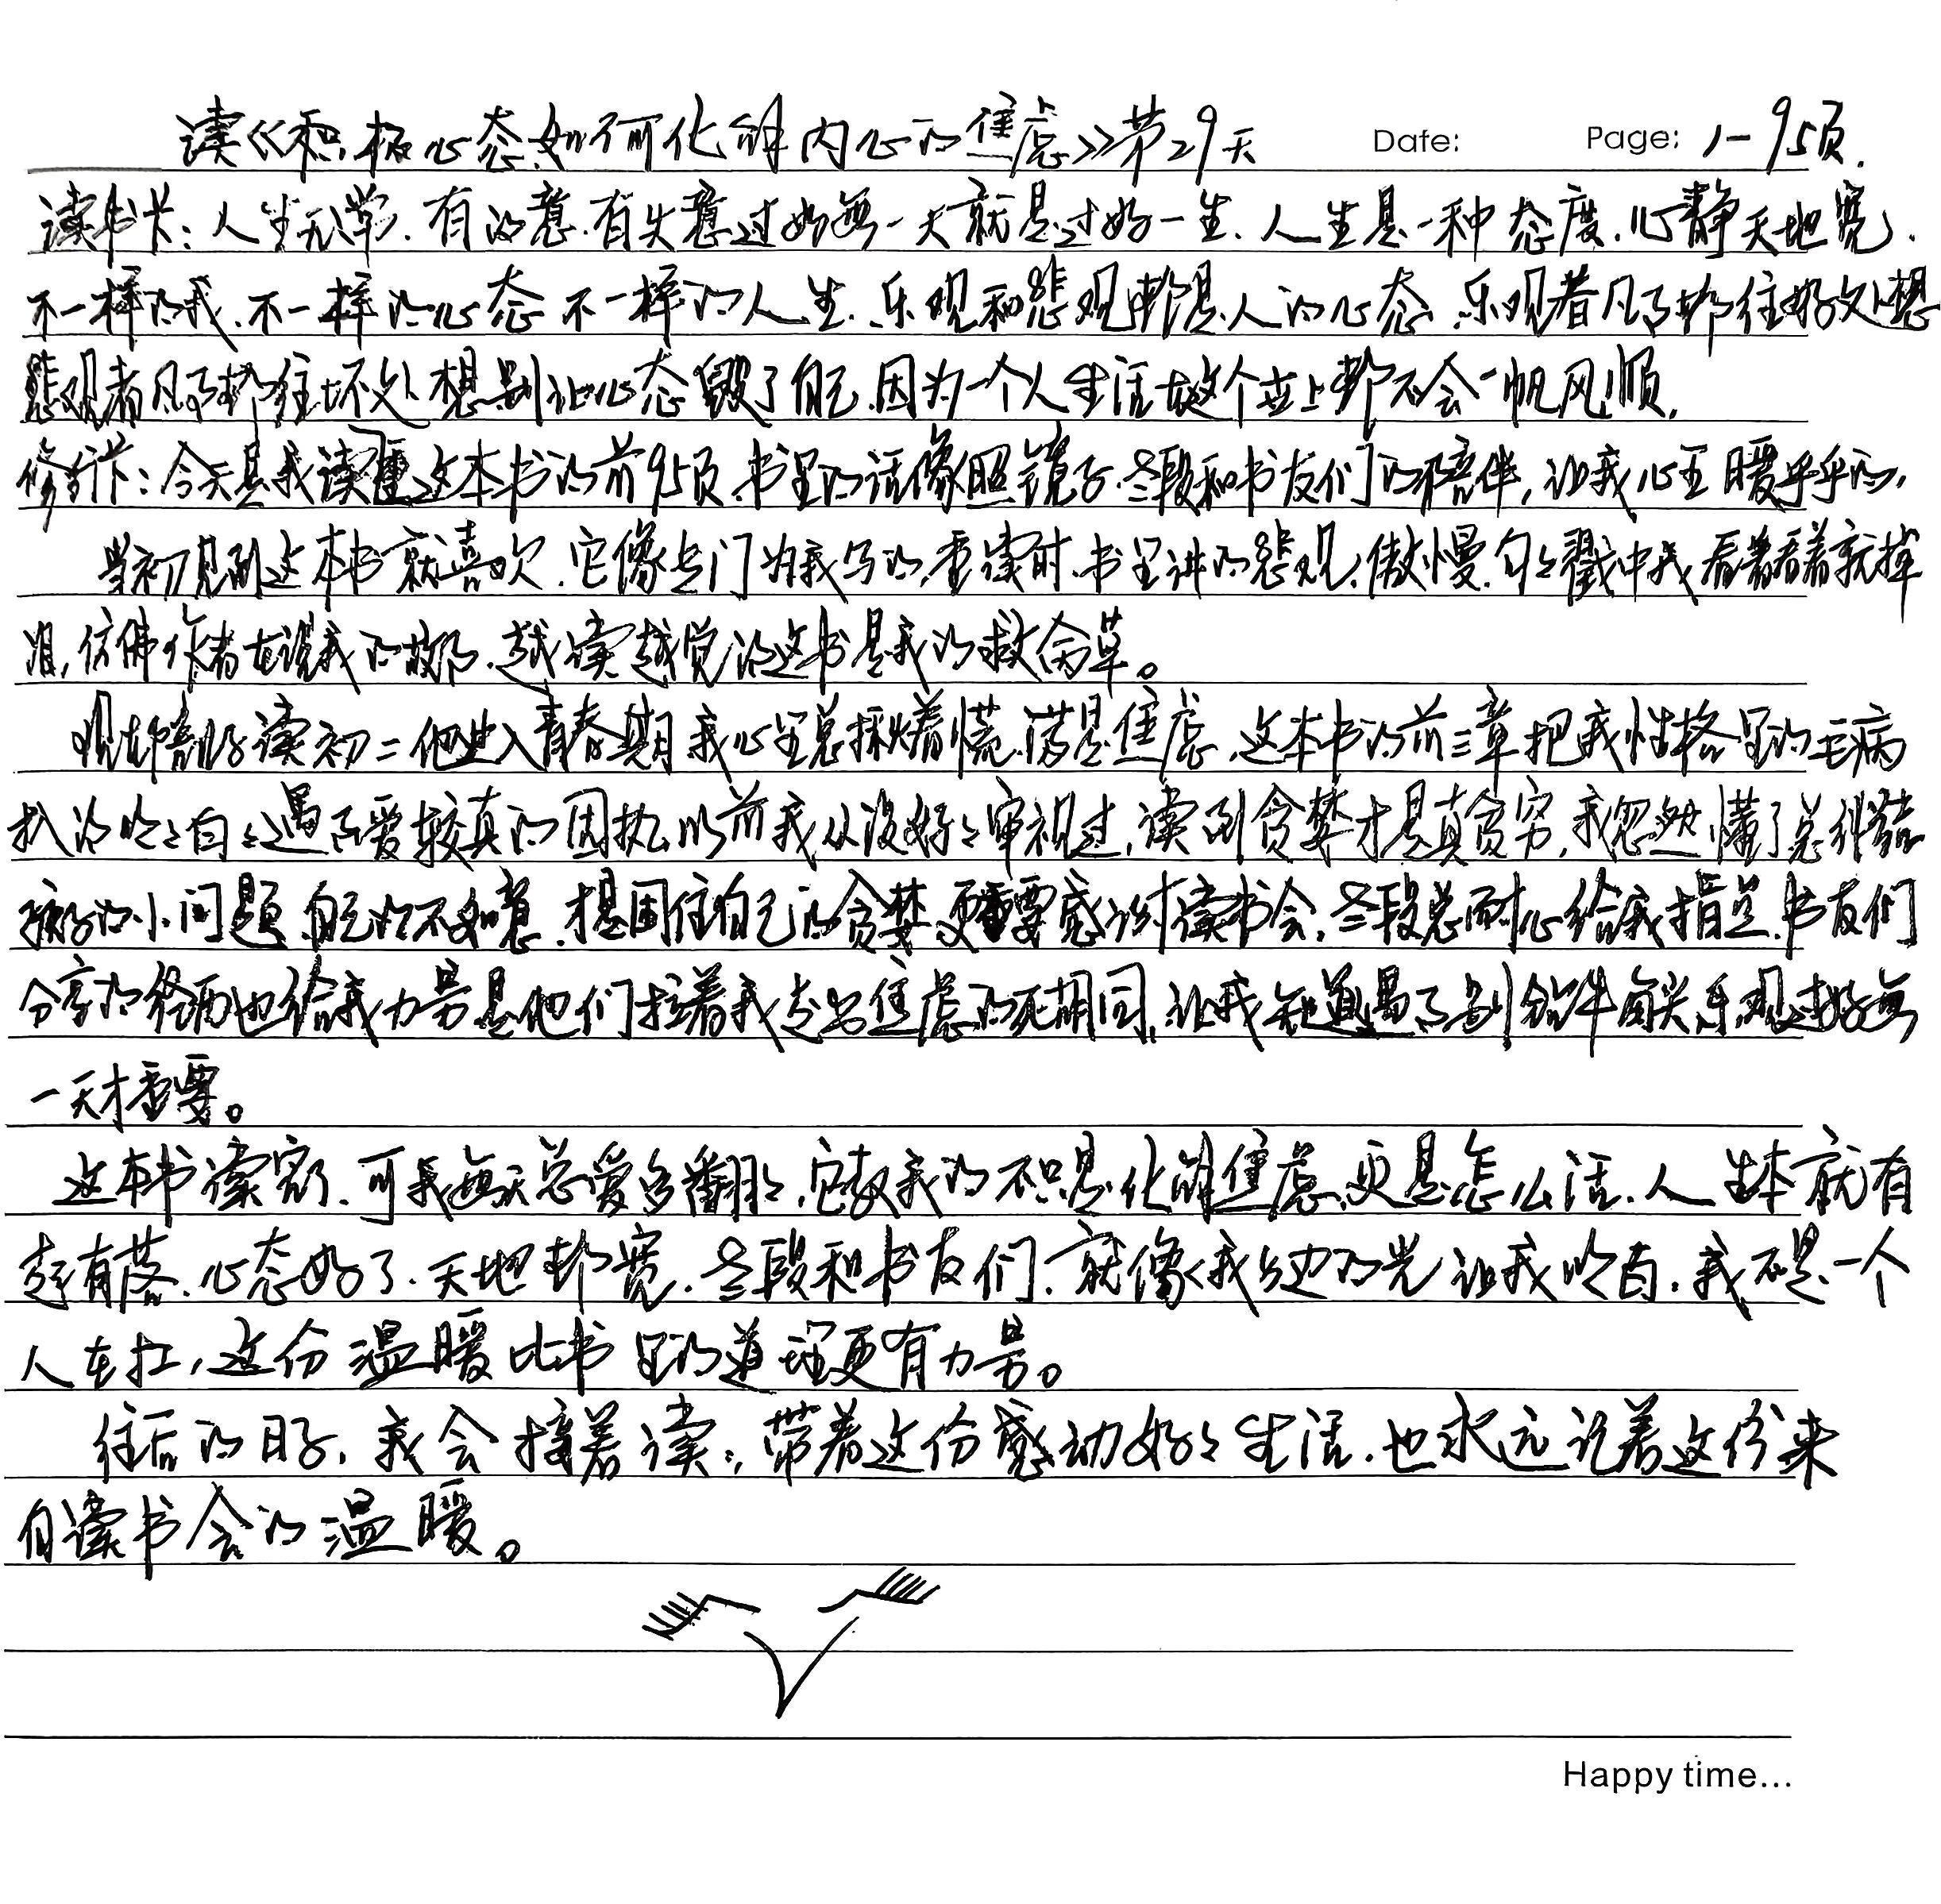 读《积极心态如何化解内心的焦虑》第29天 Date: Page: 1-95页.
读书卡:人生无常.有得意.有失意过好每一天就是过好一生.人生是一种态度.心静天地宽.
不一样的我.不一样的心态 不一样的人生.乐观和悲观都是人的心态.乐观者凡事都往好处想
悲观者凡事都往坏处想别让心态毁了自己.因为一个人生活在这个世上都不会一帆风顺.
修行卡:今天是我读重这本书的前95页.书里的话像照镜子.冬段和书友们的陪伴,让我心里暖乎乎的,
当初见到这本书就喜欢.它像专门为我写的.重读时.书里讲的悲观.傲慢.句々戳中我看着看着就掉
泪,仿佛作者在说我的故事.越读越觉得这书是我的救命草。
现在读初二他进入青春期我心里总揉着慌.满是焦虑.这本书的前三章把我性格里的毛病
扒得明々白々遇事爱较真的固执以前我从没好々审视过,读到贪婪才是真贫穷,我忽然懂了总纠结
孩子的小问题 自己的不如意.才是困住自己的贪婪更重要感谢读书会.冬段总耐心给我指点.书友们
分享的经历也给我力量是他们拉着我走出焦虑的死胡同,让我知道遇事别钻牛角尖乐观过好每
一天才重要。
这本书读完了.可我每天总爱多翻翻々.它教我的不只是化解焦虑.更是怎么活.人生本就有
起有落.心态好了.天地都宽.冬段和书友们.就像我身边的光让我明白.我不是一个
人在扛,这份温暖比书里的道理更有力量。
往后的日子.我会接着读.带着这份感动好々生活.也永远记着这份来
自读书会的温暖。
Happy time...